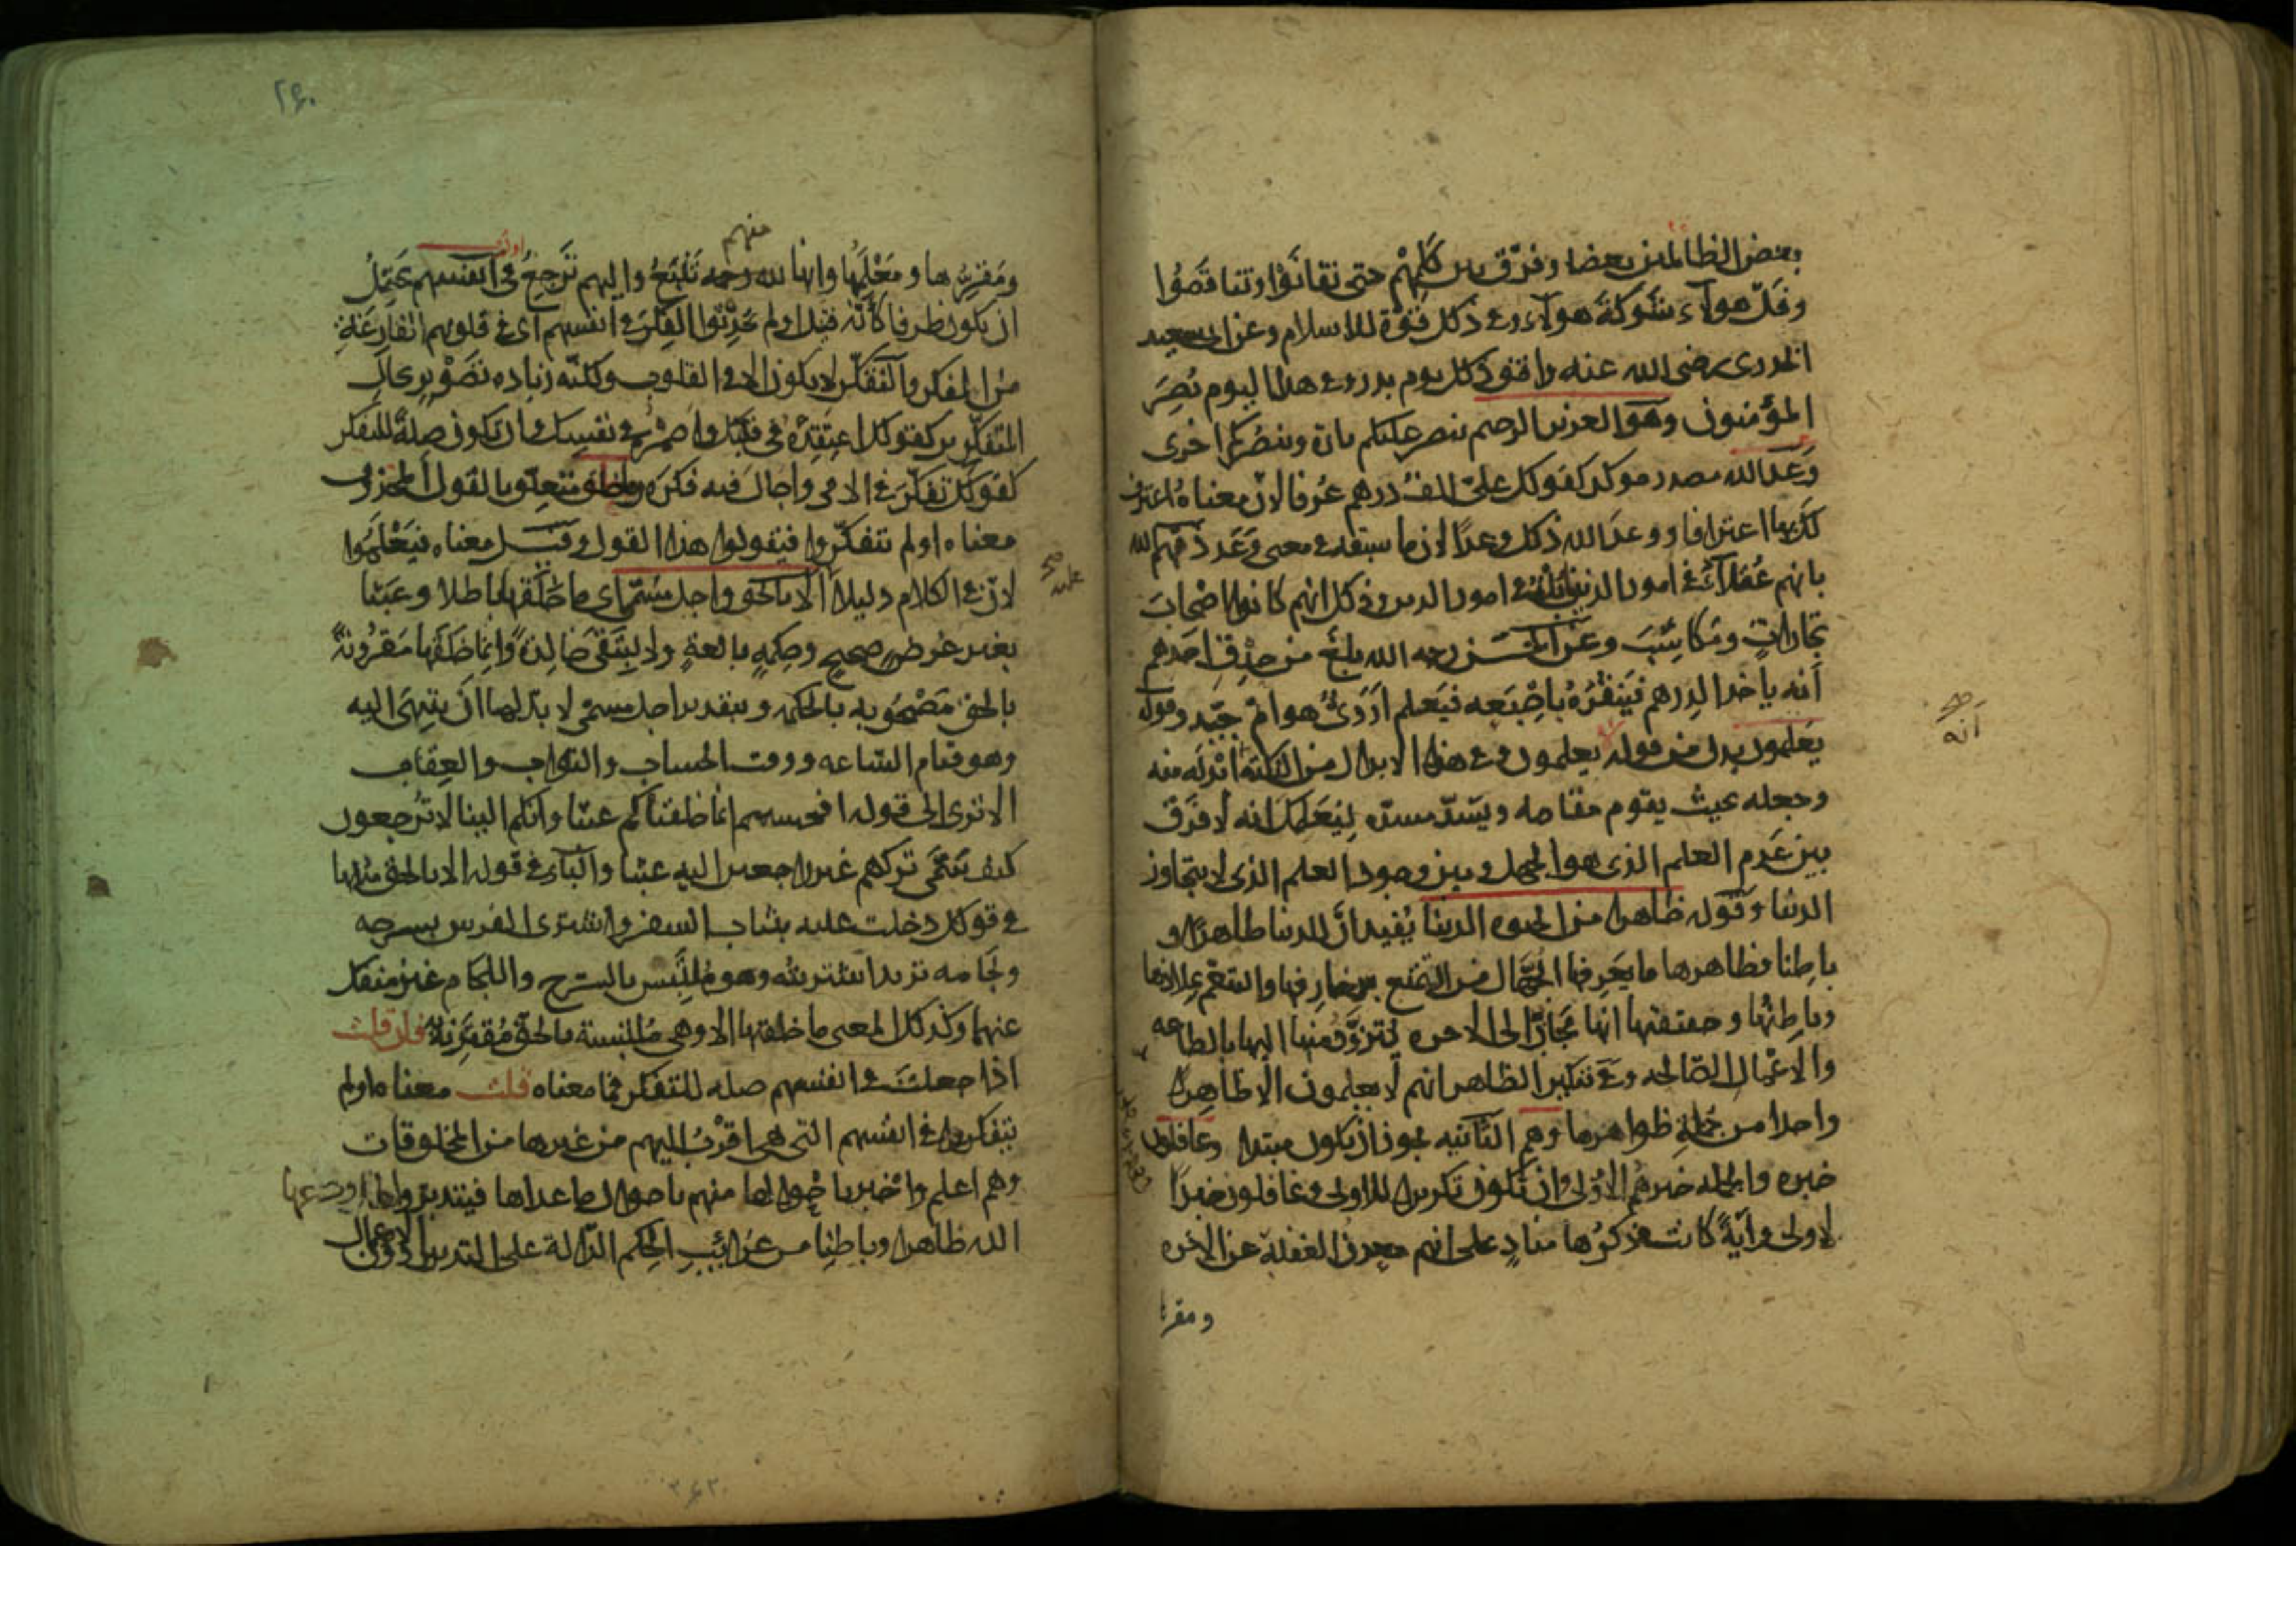 بعض الظالمين بعضا وفرّق بين كَلِمِهْم حتى تفانَوْا وتناقَصُوا
وفَلّ هولآء شَوكةَ هولآء وفي ذلك قُوّة للاسلام وعن ابى سعيد
الخدرى رضى الله عنه وافق ذلك يوم بدر وفي هذا اليوم نُصِرَ
المؤمنون وهو العزيز الرحيم ينصر عليكم تارة وينصُركم اخرى
وَعْدَ الله مصدر موكد كقولك علىّ الف درهم عُرفا لان معناه اعترف
لك بها اعترافا ووعد الله ذلك وعدًا لان ما سبقه في معنى وَعَد ذمّهم الله
بانهم عُقلآء في امور الدنيا بُلْهٌ في امور الدين وذلك انهم كانوا اصْحابَ
تجاراتٍ ومَكاسِبَ وعن الحسن رحمه الله بلغ من حِذْقِ احدهم
أنه ياخذ الدرهم فيَنقُرُهُ باِصْبَعِه فيَعلم اَرَدِىٌّ هو امْ جَيّد وقوله
يعلمون بدل من قوله لا يعلمون وفي هذا الابدال من النكتة انه اَبْدَله منه
وجعله بحيث يقوم مقامه ويَسُدّ مسدّه لِيُعَلِمك انه لا فَرْق
بين عَدَم العلم الذى هو الجهل وبين وجود العلم الذى لا يتجاوز
الدنيا وقوله ظاهرا من الحيوه الدنيا يُفيد انَّ للدنيا ظاهرًا و
باطِنا فظاهرها ما يَعْرِفه الجُهّال من التمتع بزخارِفها والتنعّم بملاذها
وباطِنُها وحقيقتها انها مَجَازٌ الى الاخره يُتزوَّد منها اليها بالطاعه
والاعْمال الصّالحه وفي تنكير الظاهر انهم لا يعلمون الا ظاهرا
واحدا من جُملةِ ظواهرها وهم الثّانيه يجوز ان يكون مبتدا وغافلون
خبره والجمله خبر هُم الاُولى وان تكون تكريرا للاولى وغافلون خبرَ
الاولى وايّةً كانت فذكرُها منادٍ على انهم معدن الغفلة عن الاخره
ومقرها
أنه
صح
ومَقرِّها ومَعْلَمُها وانها منهم تَنْبُعُ واليهم تَرجِعُ في انفسهم يَحْتَمِلُ
ان يكون ظرفا كأنّه قيل اولم يُحْدِثوا الفِكْرَ في انفسهم اى في قلوبهم الفارِغَةِ
من الفكر والتّفَكّر لا يكون الا في القلوب ولكنّه زياده تَصْوْيرٍ لحالِ
المتفكّرين كقولك اعتَقِدْهُ في قلبك واضْمِرْهُ في نفسِك وان يكون صِلةً للتفكر
كقولك تفكّرَ في الامر واجالَ فيه فكرَه وما خلق متعلّق بالقول المحذوف
معناه اولم تتفكّروا فيقولوا هذا القول وقيل معناه فيَعْلَمُوا
لان في الكلام دليلا عليه الا بالحق واجل مسَمّى اى ما خَلَقها باطلا وعَبَثا
بغير غرضٍ صحيحٍ وحِكمةٍ بالغةٍ ولا لِتبقَى خالِدةً وانما خَلَقَها مَقْرُونةً
بالحق مَصْحُوبه بالحكمه وبتقدير اجل مسمّى لا بدّ لها ان ينتهىَ اليه
وهو قيام السّاعه ووقت الحساب والثواب والعِقابِ
الا ترى الى قوله افحسبتم انما خلقناكم عبثا وانكم الينا لا تُرجعون
كيف سَمَّى تركهم غير راجعين اليه عبثا والبآء في قوله الا بالحق مثلها
في قولك دخلت عليه بثياب السفر واشترى الفرس بسرجه
ولجامه تريد اشتريته وهو مُلتَبِس بالسّرج واللجام غير منفك
عنهما وكذلك المعنى ما خلقها الا وهى مُلتبسة بالحق مُقترِنةٌ به فان قلت
اذا جعلت في انفسهم صله للتفكر فما معناه قلت معناه اولم
يتفكروا في انفسهم التى هى اقرَبُ اليهم من غيرها من المخلوقات
وهم اعلم واَخبر باَحْوالها منهم باحوال ما عداها فيتدبّروا ما اودعها
الله ظاهرا وباطِنا من غرائِبِ الحِكَم الدّالة على التدبير دون الاهمال